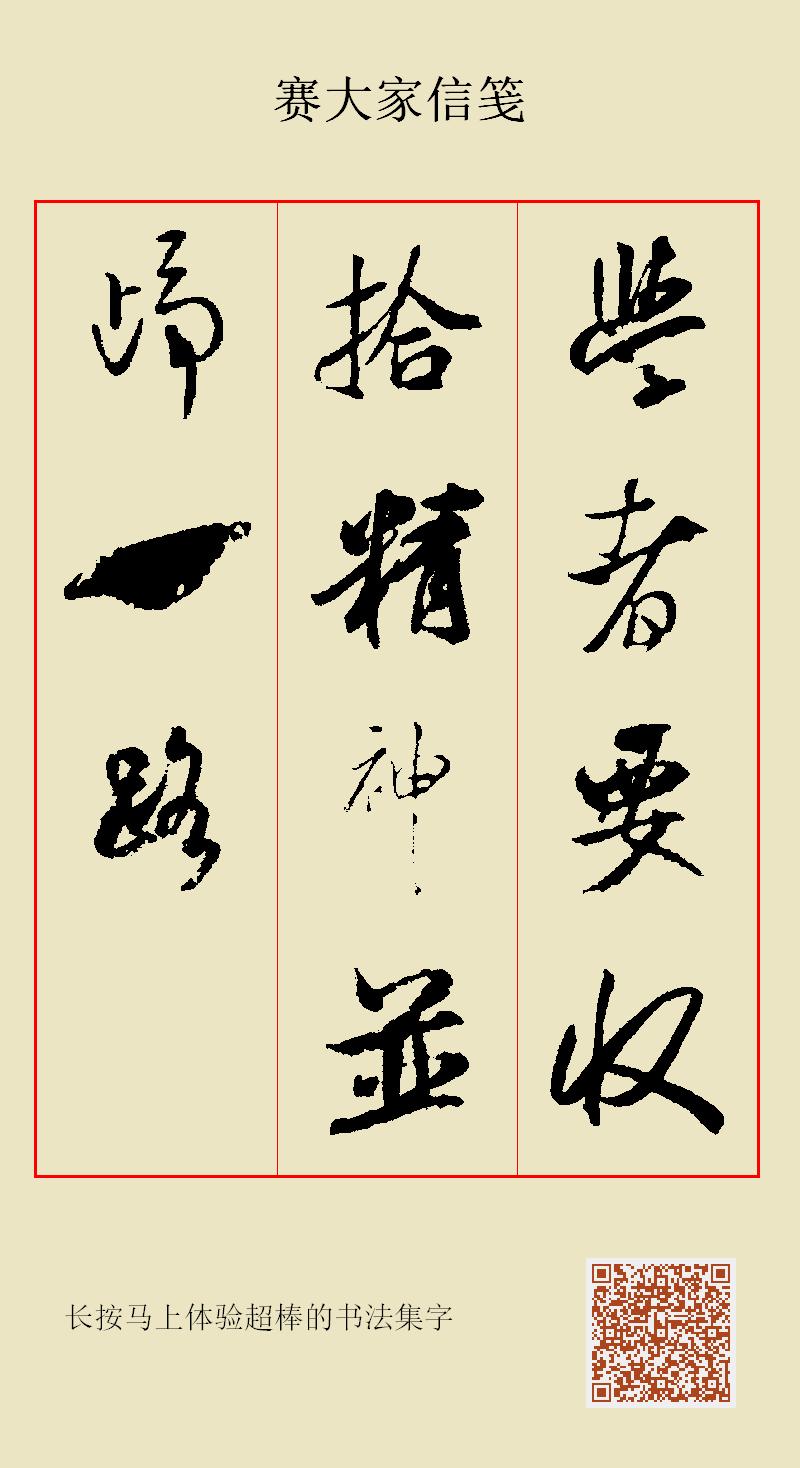 赛大家信笺
學者要收
拾精神並
歸一路
长按马上体验超棒的书法集字